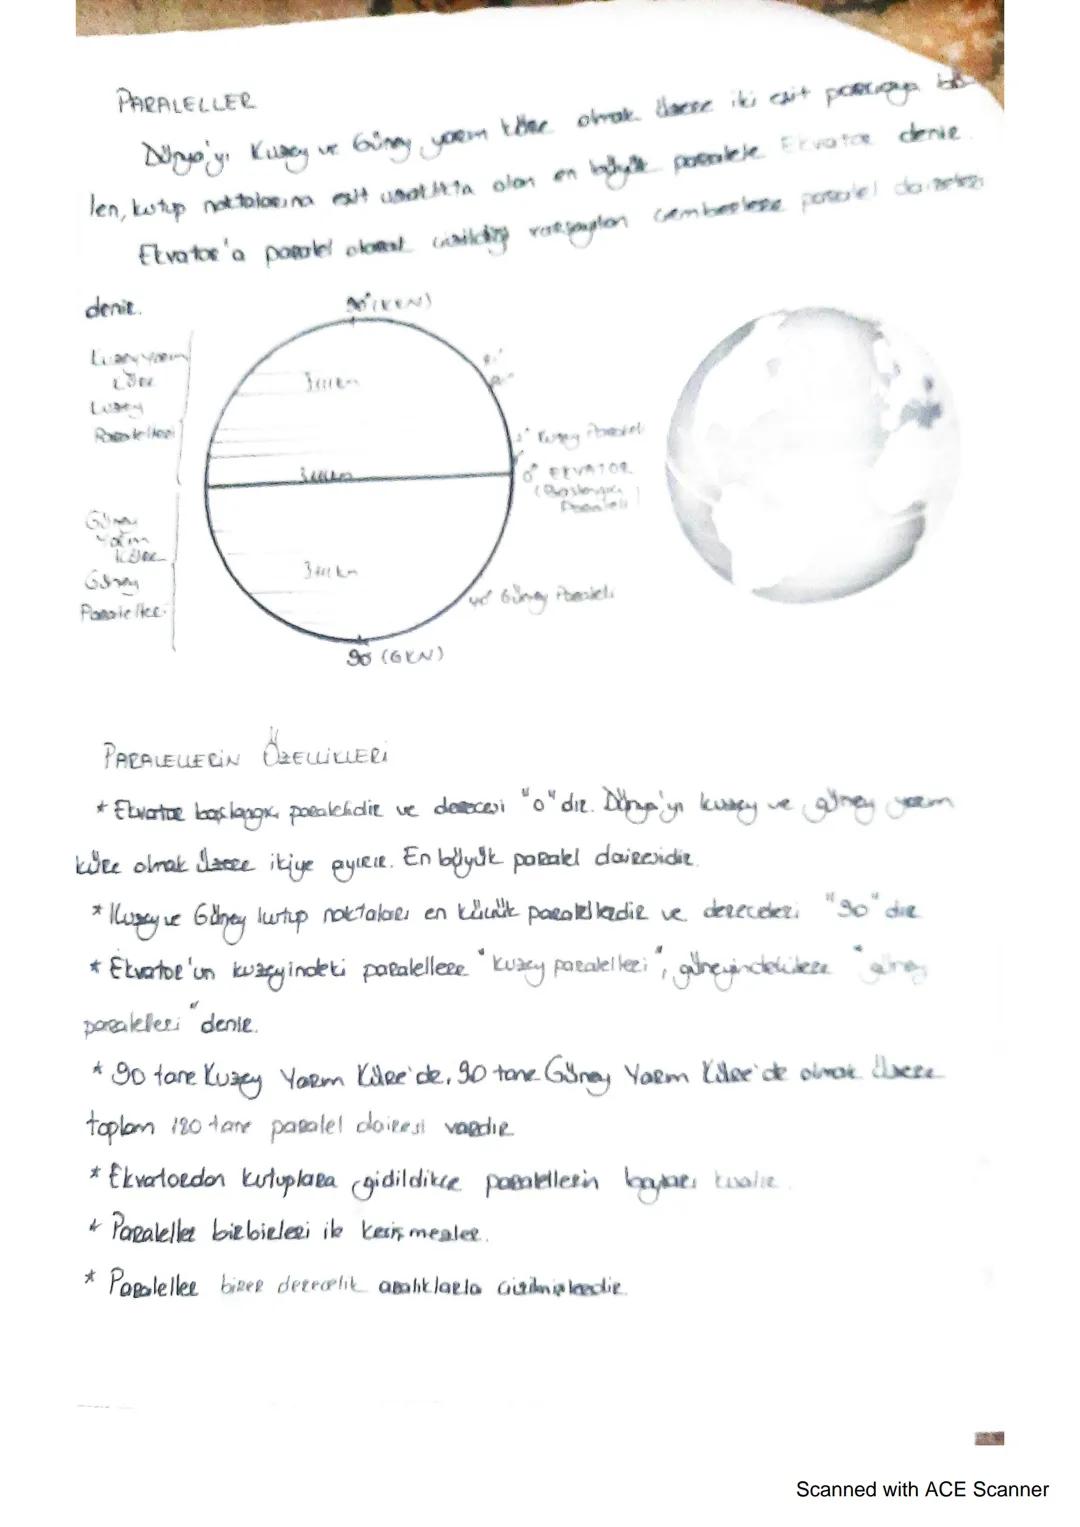 PARALELLER
Dünya'yı Kuzey ve Güney yarım küre olmak üzere iki eşit parçaya bö
len, kutup noktalarına eşit uzaklıkta olan en büyük paralele Ekvator denir.
Ekvator'a paralel olarak çizildiği varsayılan çemberlere paralel daireleri
denir.
90° (KKN)
Kuzey yarım
Küre
Kuzey
Paralelleri
1° Kuzey Paraleli
0° EKVATOR
(Başlangıç
Paraleli)
Güney
Yarım
Küre
Güney
Paralelleri
40° Güney Paraleli
90 (GKN)
PARALELLERİN ÖZELLİKLERİ
* Ekvator başlangıç paralelidir ve derecesi "0" dır. Dünya'yı kuzey ve güney yarım
küre olmak üzere ikiye ayırır. En büyük paralel dairesidir.
* Kuzey ve Güney kutup noktaları en küçük paralellerdir ve dereceleri "90" dır
* Ekvator'un kuzeyindeki paralellere "kuzey paralelleri", güneyindekilere "güney
paralelleri" denir.
* 90 tane Kuzey Yarım Küre'de, 90 tane Güney Yarım Küre'de olmak üzere
toplam 180 tane paralel dairesi vardır
* Ekvatordan kutuplara gidildikçe paralellerin boyları kısalır.
* Paraleller birbirleri ile kesişmezler.
* Paraleller birer derecelik aralıklarla çizilmişlerdir.
Scanned with ACE Scanner